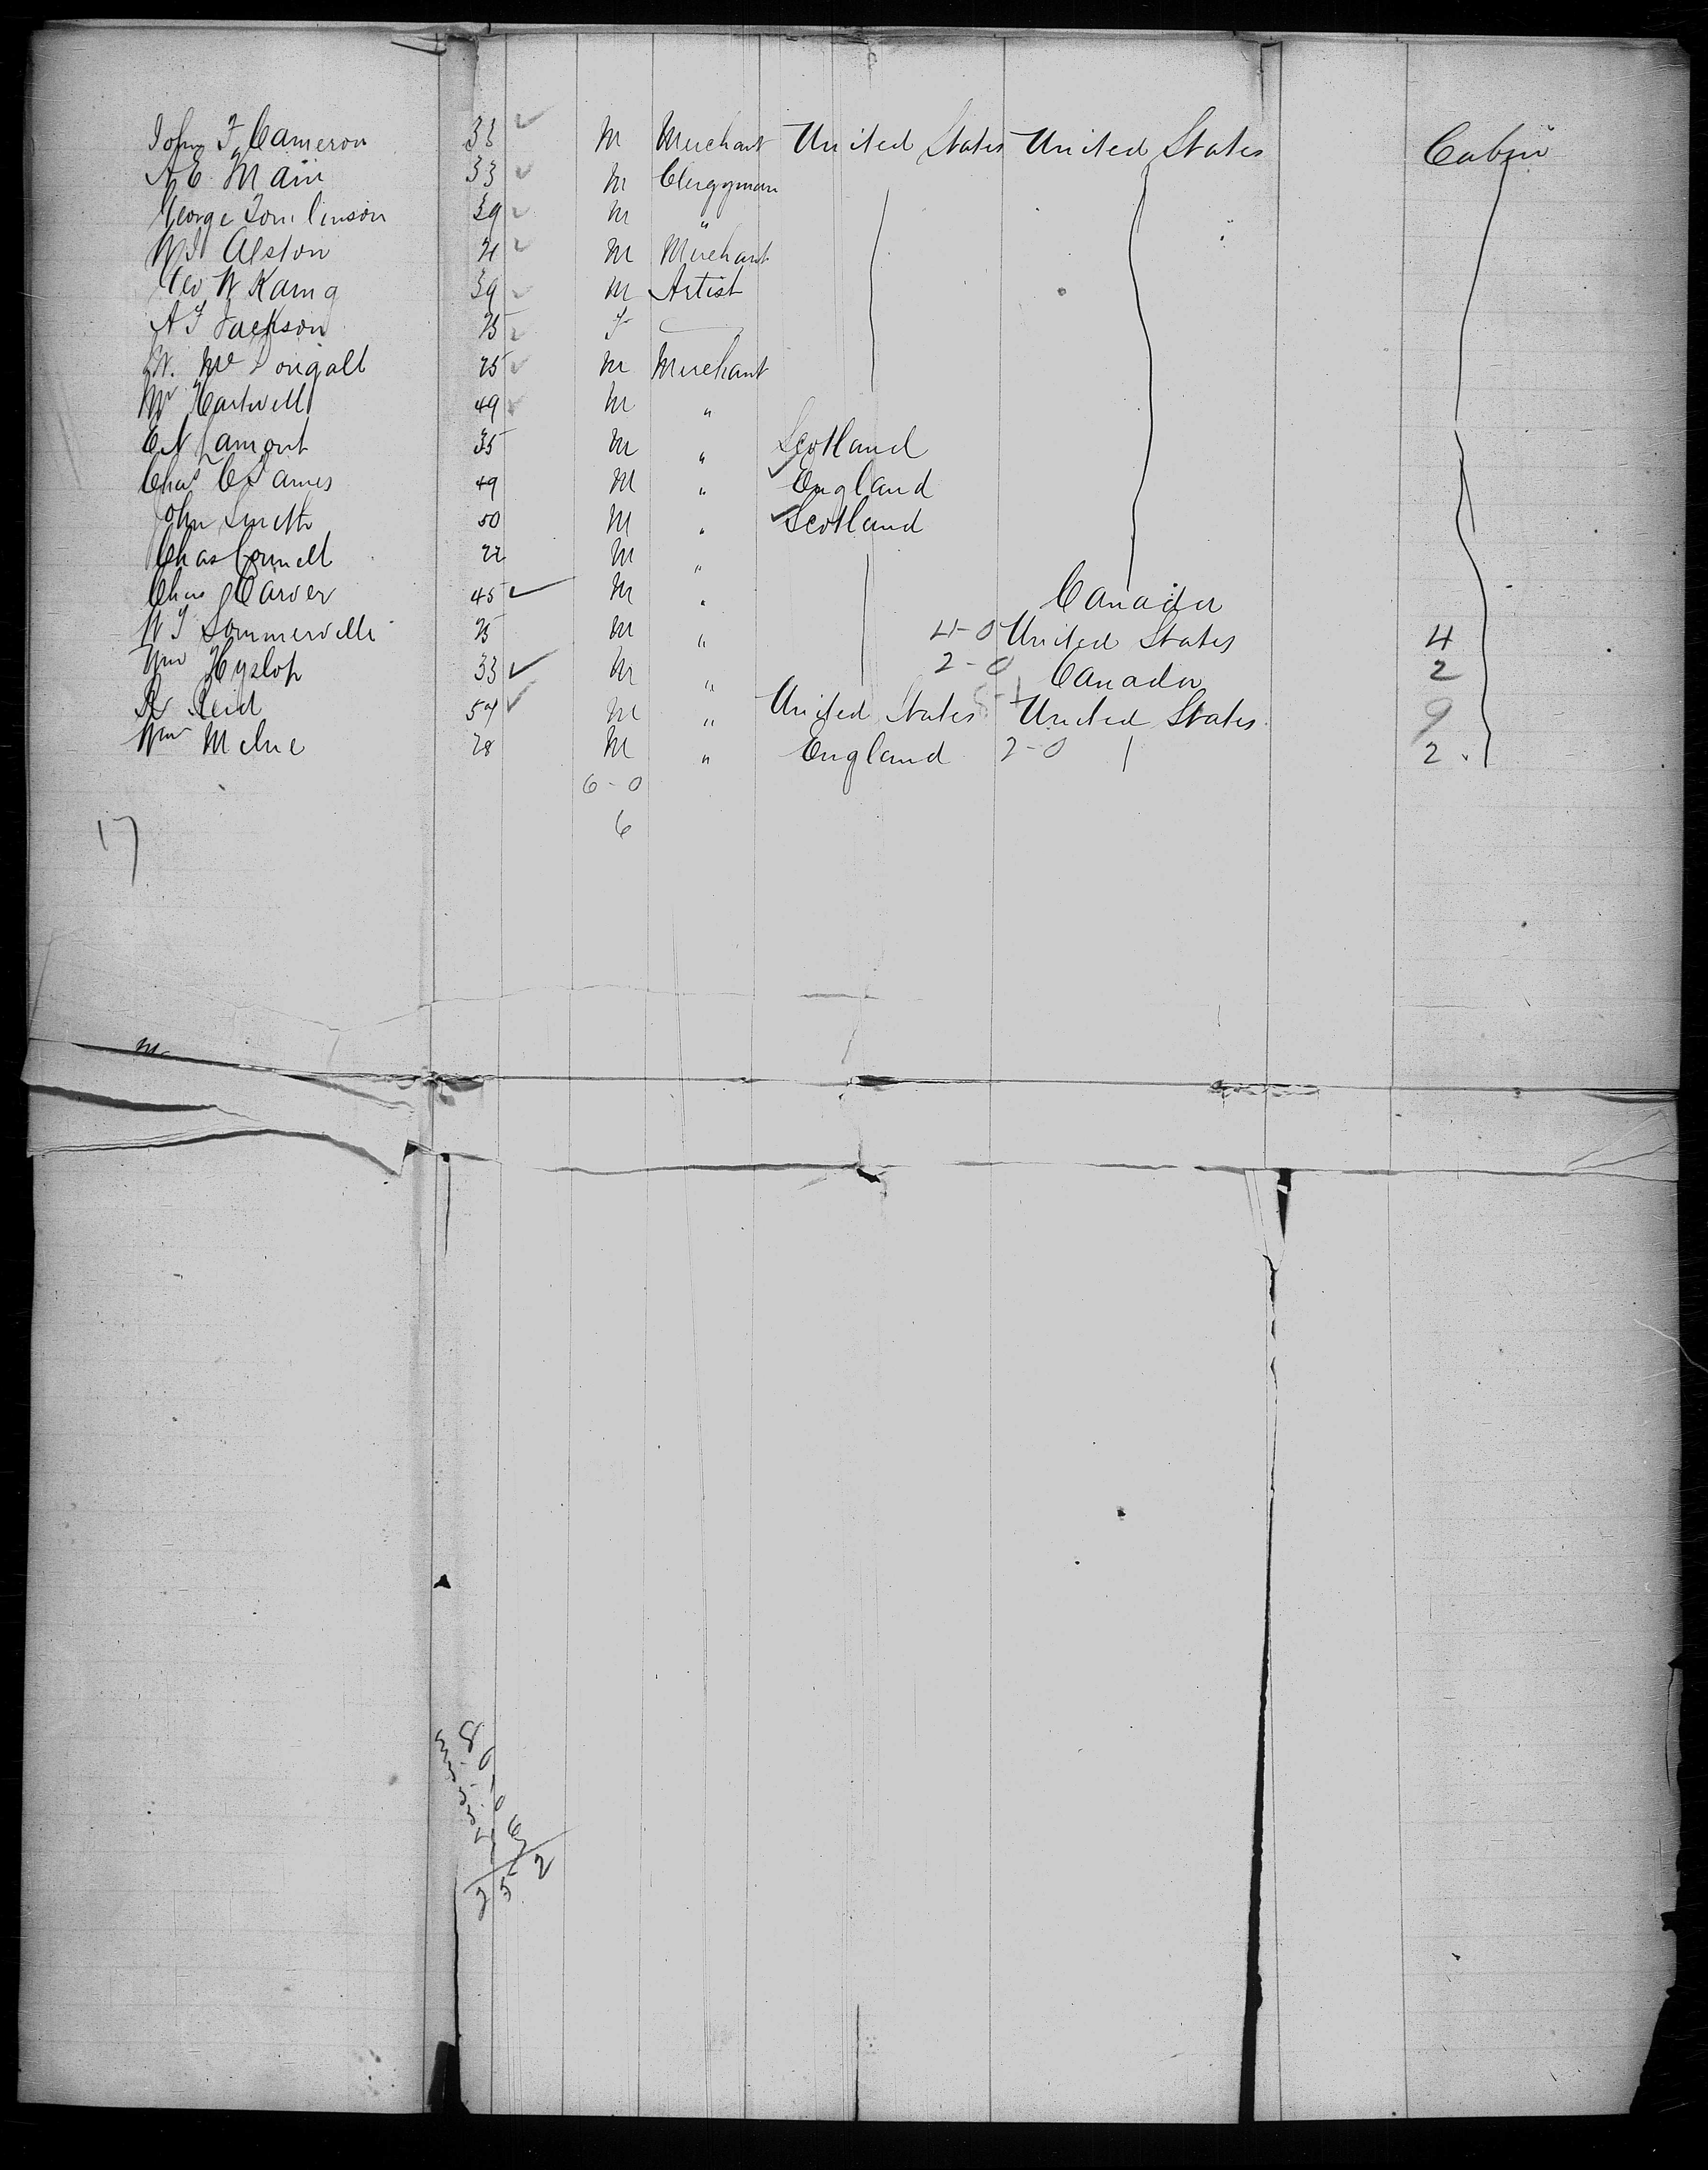 John F Cameron 33 M Merchant United States United States Cabin
A E Main 33 M Clergyman
George Tomlinson 39 M "
W J Alston 21 M Merchant
Geo W 39 M Artist
A J Jackson 25 F
W. Mc Dougall 25 M Merchant
Mr Hartwell 49 M "
C N Lamont 35 M " Scotland
Chas C James 49 M " England
John Smith 50 M " Scotland
Chas 22 M "
Chas Carver 45 M " Canada
W J Sommerville 25 M " 4-0 United States 4
Wm Hyslop 33 M " 2-0 Canada 2
R Reid 54 M " United States 5-1 United States 9
Wm 28 M " England 2-0 2
6-0
17 6
M
8
0
6
252